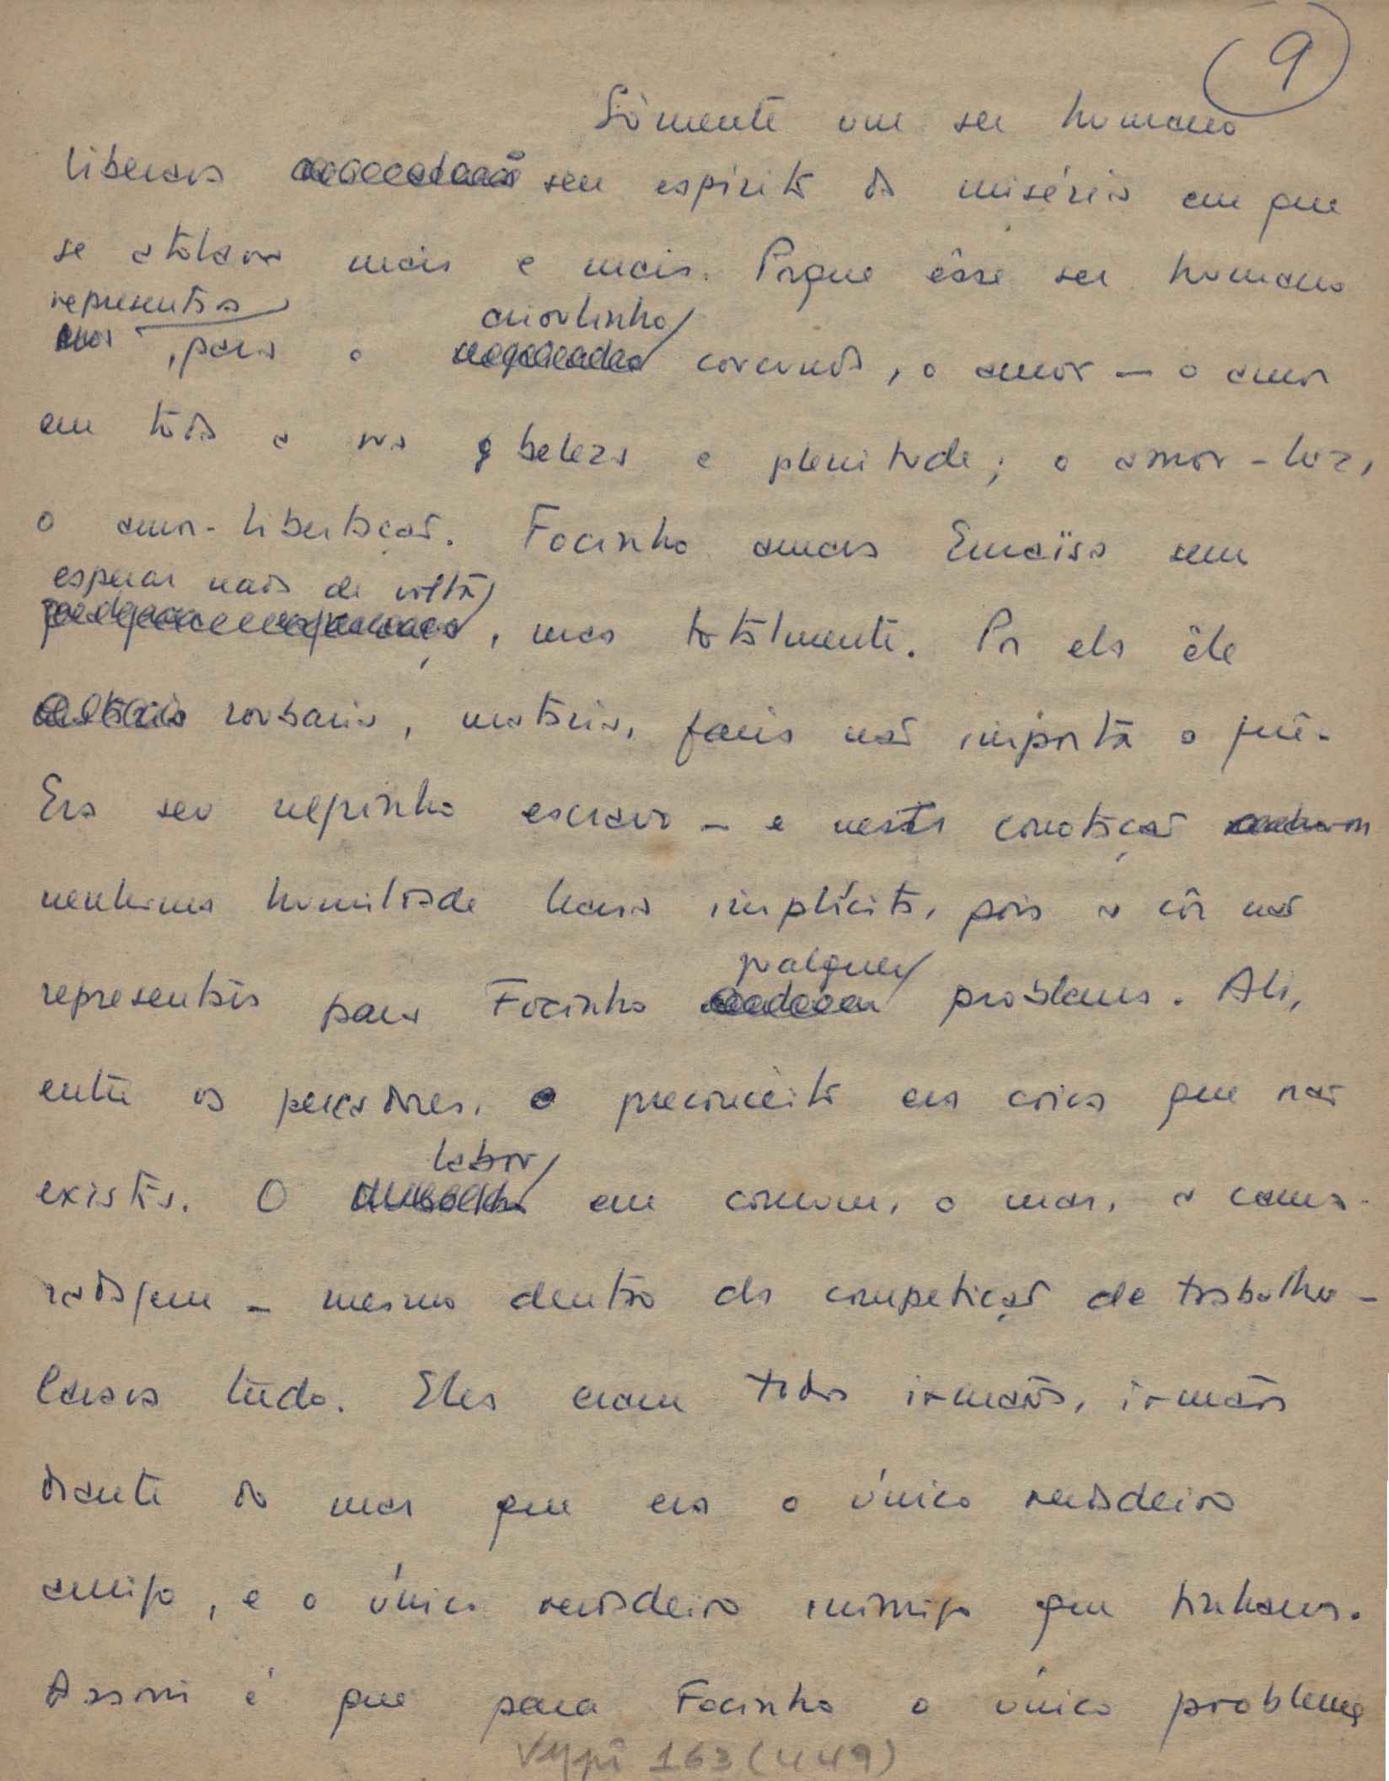 9
Sòmente um ser humano
liberava seu espírito da miséria em que
se atolava mais e mais. Porque êsse ser humano
representava
crioulinho
, para o corcunda, o amor — o amor
em tôda a sua beleza e plenitude; o amor-luz,
o amor-libertação. Focinho amava sem
esperar nada de volta
, mas totalmente. Por ela êle
roubaria, mataria, faria não importa o quê.
Era seu neguinho escravo — e nesta conotação
nenhuma humildade havia implícita, pois a côr não
qualquer
representava para Focinho problema. Ali,
entre os pescadores, o preconceito era coisa que não
existia. O
labor
em comum, o mar, a cama-
radagem — mesmo dentro da competição de trabalho —
lavava tudo. Eles eram todos irmãos, irmãos
diante do mar que era o único verdadeiro
amigo, e o único verdadeiro inimigo que tinham.
Assim é que para Focinho o único problema
163 (449)